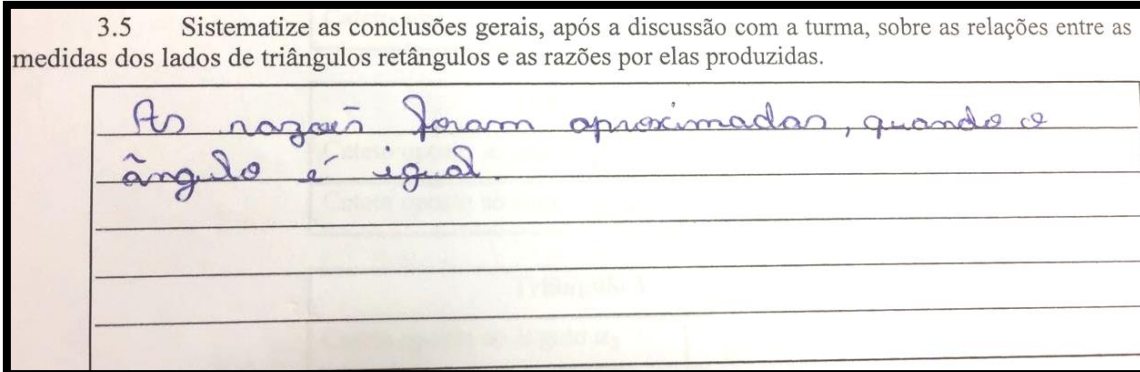 3.5 Sistematize as conclusões gerais, após a discussão com a turma, sobre as relações entre as
medidas dos lados de triângulos retângulos e as razões por elas produzidas.
As razões foram aproximadas, quando o
ângulo é igual.